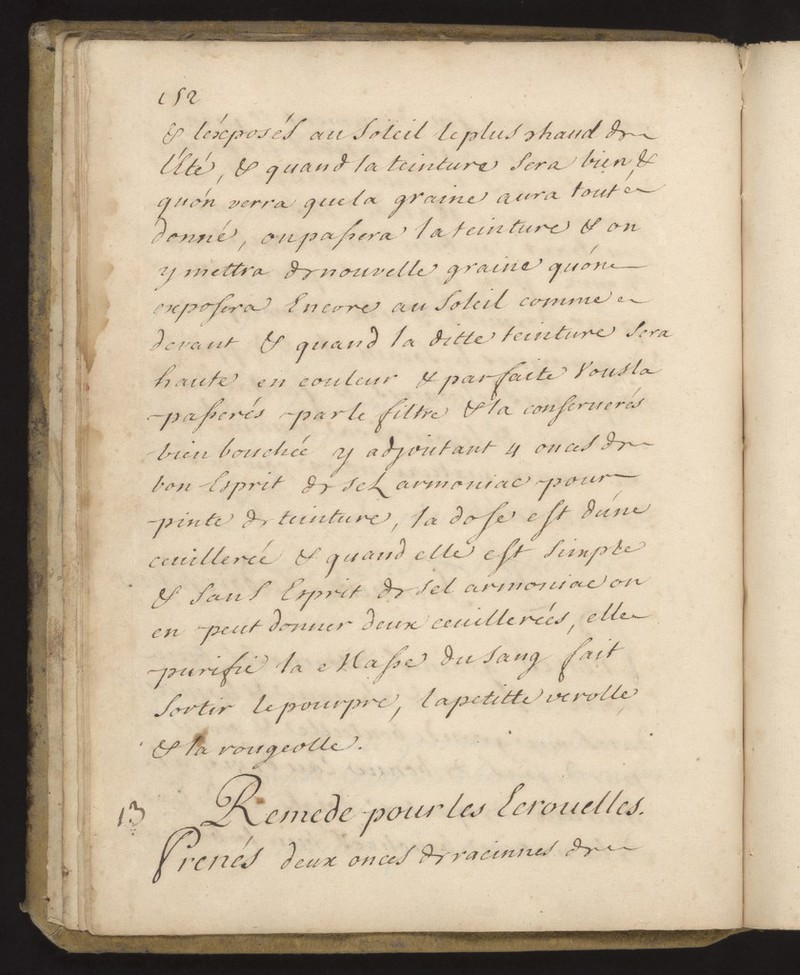 152
& léxposés au Soleil le plus chaud de
L'Eté, & quand la teinture Sera bien &
quón verra que la graine aura tout
donné, on passera la teinture & on
y mettra de nouvelle graine quón
exposera Encore au Soleil comme
devant & quand la ditte teinture Sera
haute en couleur & parfaite Vous la
passerés par le filtre & la conserverés
bien bouchée y adjoutant 4 onces de
bon Esprit de sel armoniac pour
pinte de teinture, la dose est dúne
ceuillereé & quand elle est Simple
& Sans Esprit de Sel armoniac on
en peut donner deux ceuillereés, elle
purifie la Masse du Sang fait
Sortir le pourpre, la petitte verolle
& la rougeolle.
13 Remede pour les Ecrouelles.
Prenés deux onces de racinnes de